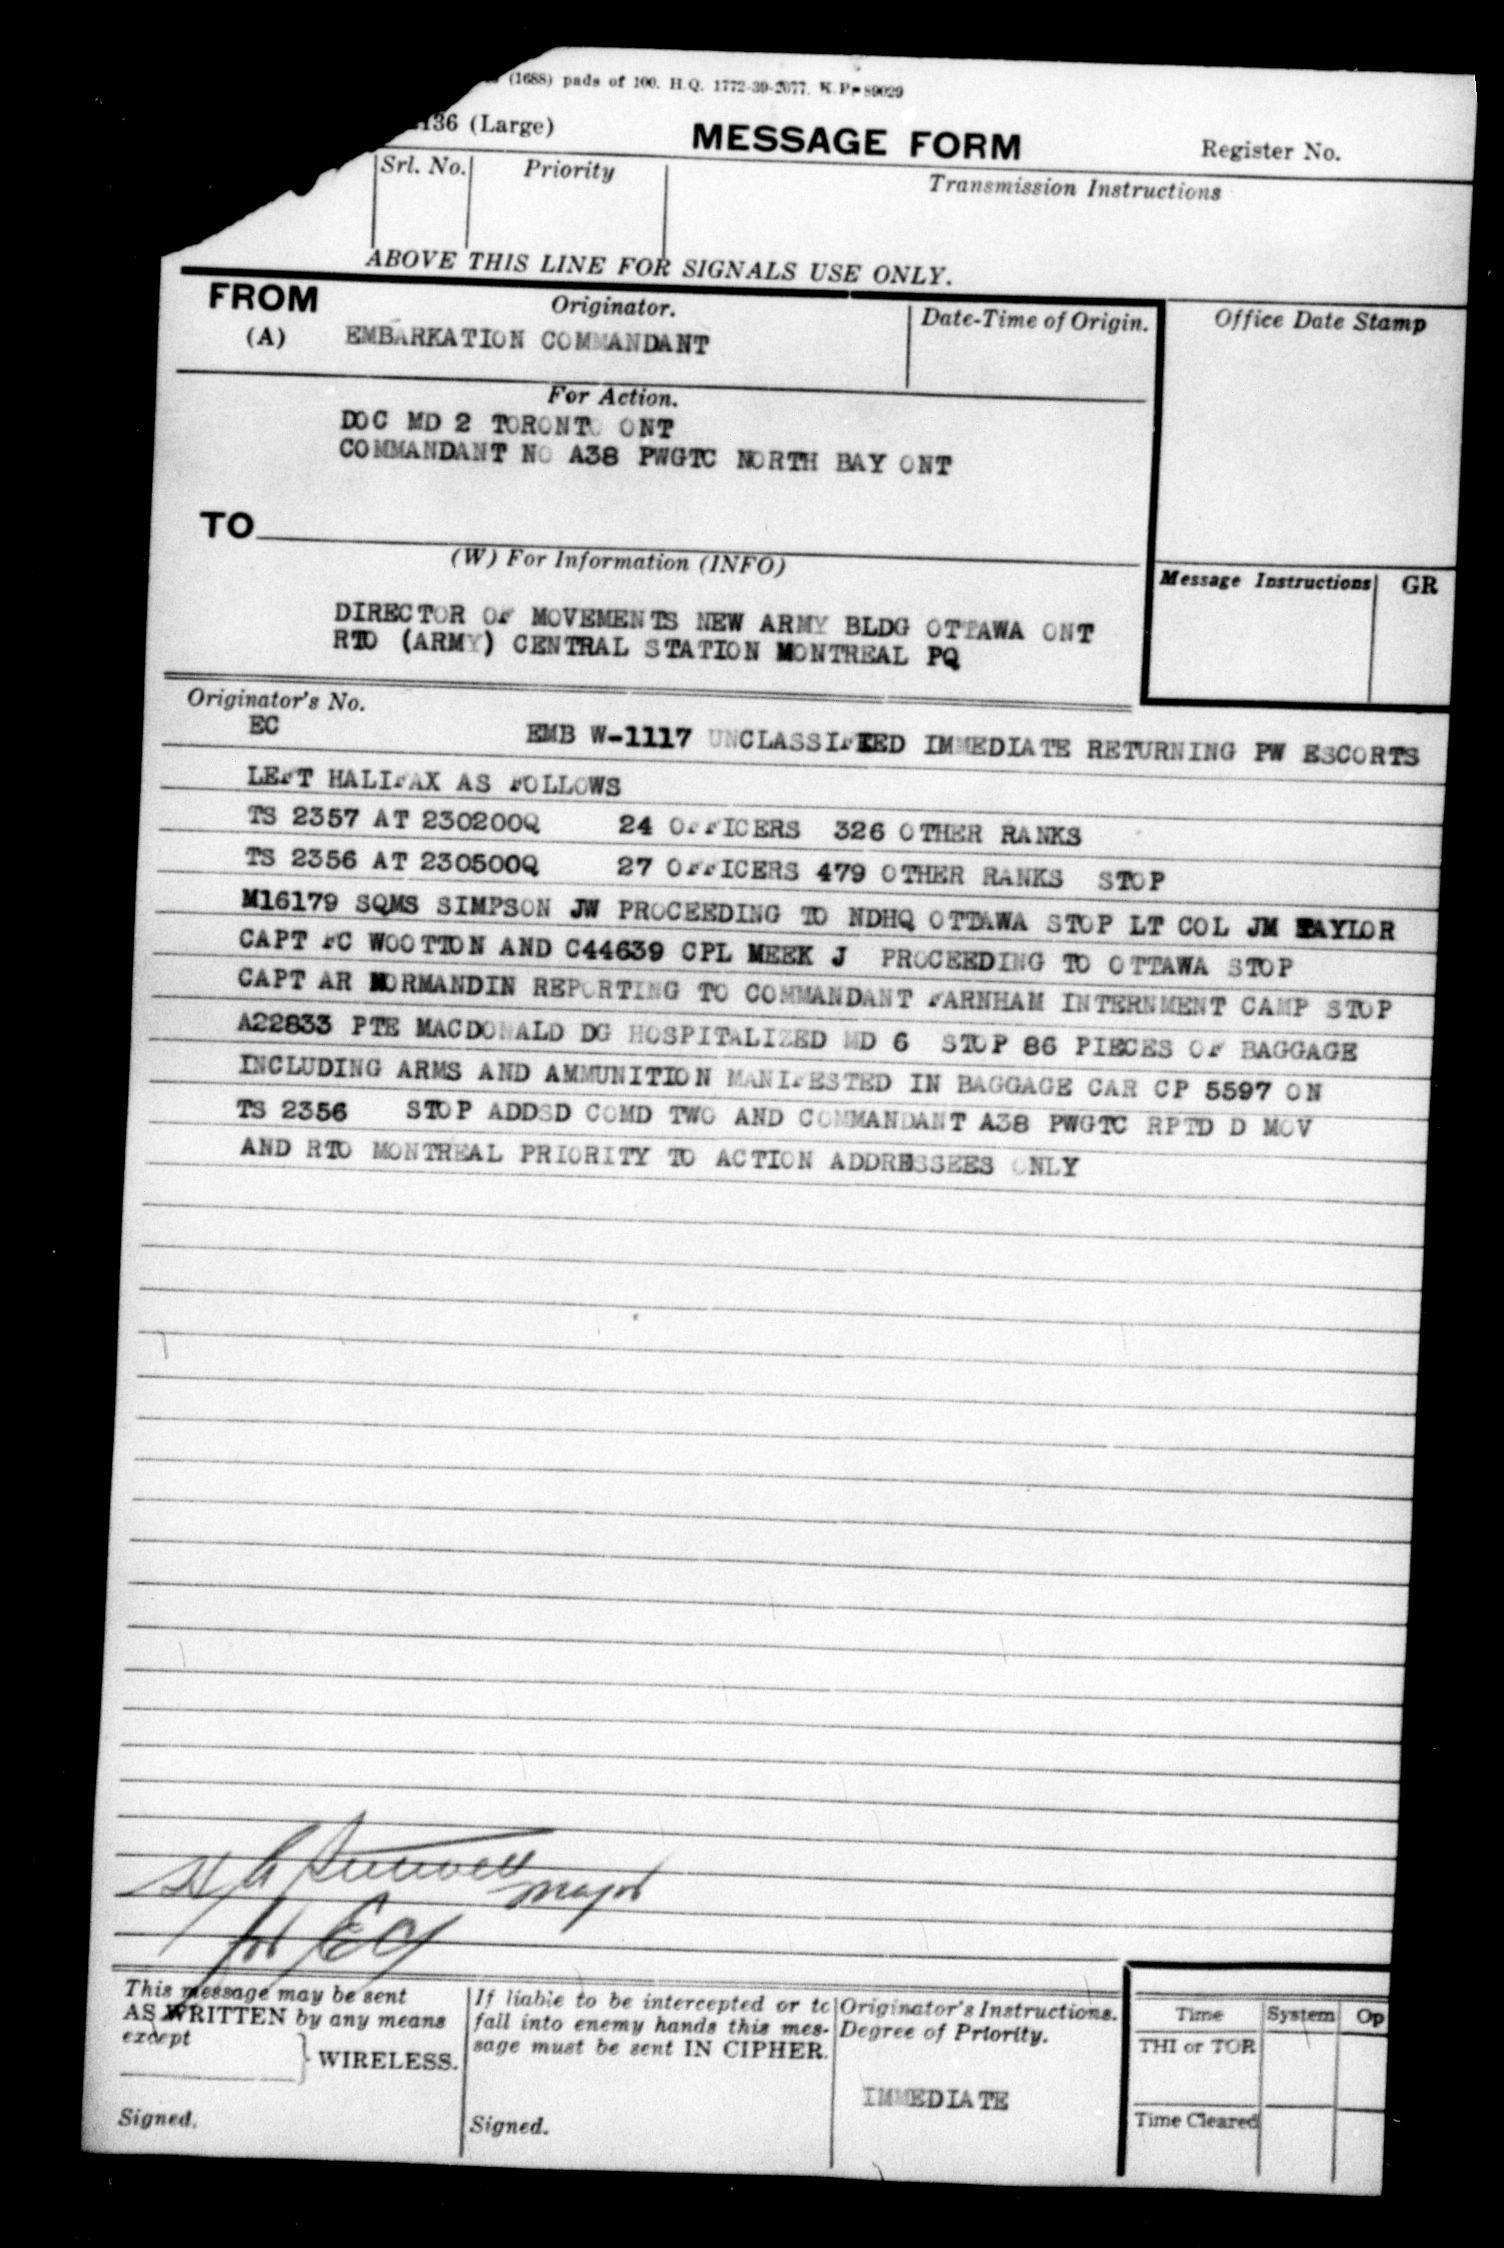 (1688) pads of 100. H.Q. 1772-39-2077. K.P. 89029
136 (Large)
MESSAGE FORM
Register No.
Srl. No.
Priority
Transmission Instructions
ABOVE THIS LINE FOR SIGNALS USE ONLY.
FROM
(A)
Originator.
EMBARKATION COMMANDANT
Date-Time of Origin.
Office Date Stamp
For Action.
DOC MD 2 TORONTO ONT
COMMANDANT NO A38 PWGTC NORTH BAY ONT
TO
(W) For Information (INFO)
Message Instructions
GR
DIRECTOR OF MOVEMENTS NEW ARMY BLDG OTTAWA ONT
RTO (ARMY) CENTRAL STATION MONTREAL PQ
Originator's No.
EC EMB W-1117 UNCLASSIFIED IMMEDIATE RETURNING PW ESCORTS
LEFT HALIFAX AS FOLLOWS
TS 2357 AT 230200Q 24 OFFICERS 326 OTHER RANKS
TS 2356 AT 230500Q 27 OFFICERS 479 OTHER RANKS STOP
M16179 SQMS SIMPSON JW PROCEEDING TO NDHQ OTTAWA STOP LT COL JM TAYLOR
CAPT FC WOOTTON AND C44639 CPL MEEK J PROCEEDING TO OTTAWA STOP
CAPT AR NORMANDIN REPORTING TO COMMANDANT FARNHAM INTERNMENT CAMP STOP
A22833 PTE MACDONALD DG HOSPITALIZED MD 6 STOP 86 PIECES OF BAGGAGE
INCLUDING ARMS AND AMMUNITION MANIFESTED IN BAGGAGE CAR CP 5597 ON
TS 2356 STOP ADDSD COMD TWO AND COMMANDANT A38 PWGTC RPTD D MOV
AND RTO MONTREAL PRIORITY TO ACTION ADDRESSEES ONLY
Major
for EC
This message may be sent
AS WRITTEN by any means
except
WIRELESS.
Signed.
If liable to be intercepted or to
fall into enemy hands this mes-
sage must be sent IN CIPHER.
Signed.
Originator's Instructions.
Degree of Priority.
IMMEDIATE
Time
System
Op
THI or TOR
Time Cleared